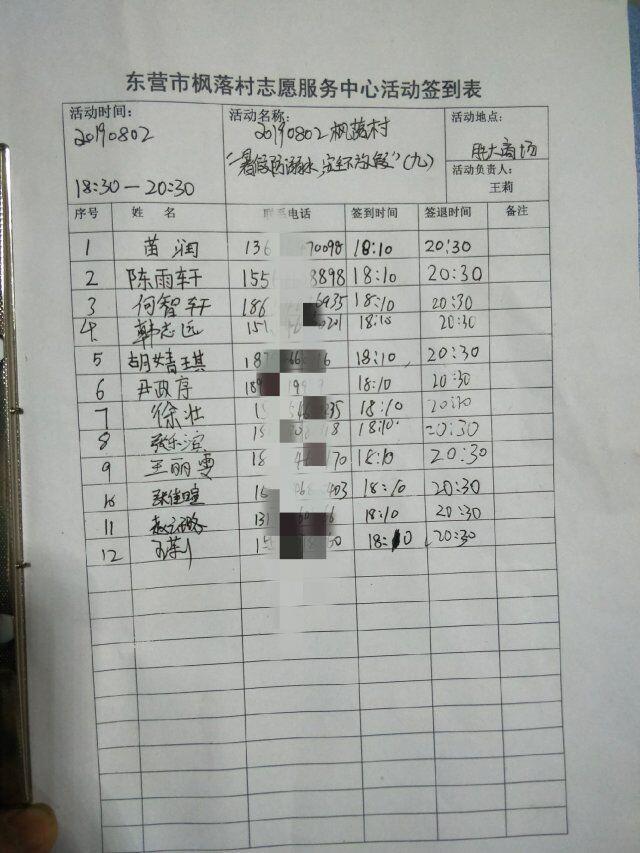 东营市枫落村志愿服务中心活动签到表
活动时间: 活动名称: 活动地点:
20190802 20190802 枫落村 胜大商场
18:30—20:30 "暑假防溺水,安全不放假"(九) 活动负责人:
王莉
序号 姓 名 联系电话 签到时间 签退时间 备注
1 苗润 136 70098 18:10 20:30
2 陈雨轩 155 8898 18:10 20:30
3 何智轩 186 6935 18:10 20:30
4 韩志远 151 0221 18:10 20:30
5 胡婧琪 187 66 16 18:10 20:30
6 尹政序 18 199 18:10 20:30
7 徐壮 15 235 18:10 20:30
8 15 18 18:10 20:30
9 王丽雯 18 170 18:10 20:30
10 张佳暄 403 18:10 20:30
11 131 18:10 20:30
12 王莉 15 50 18:10 20:30